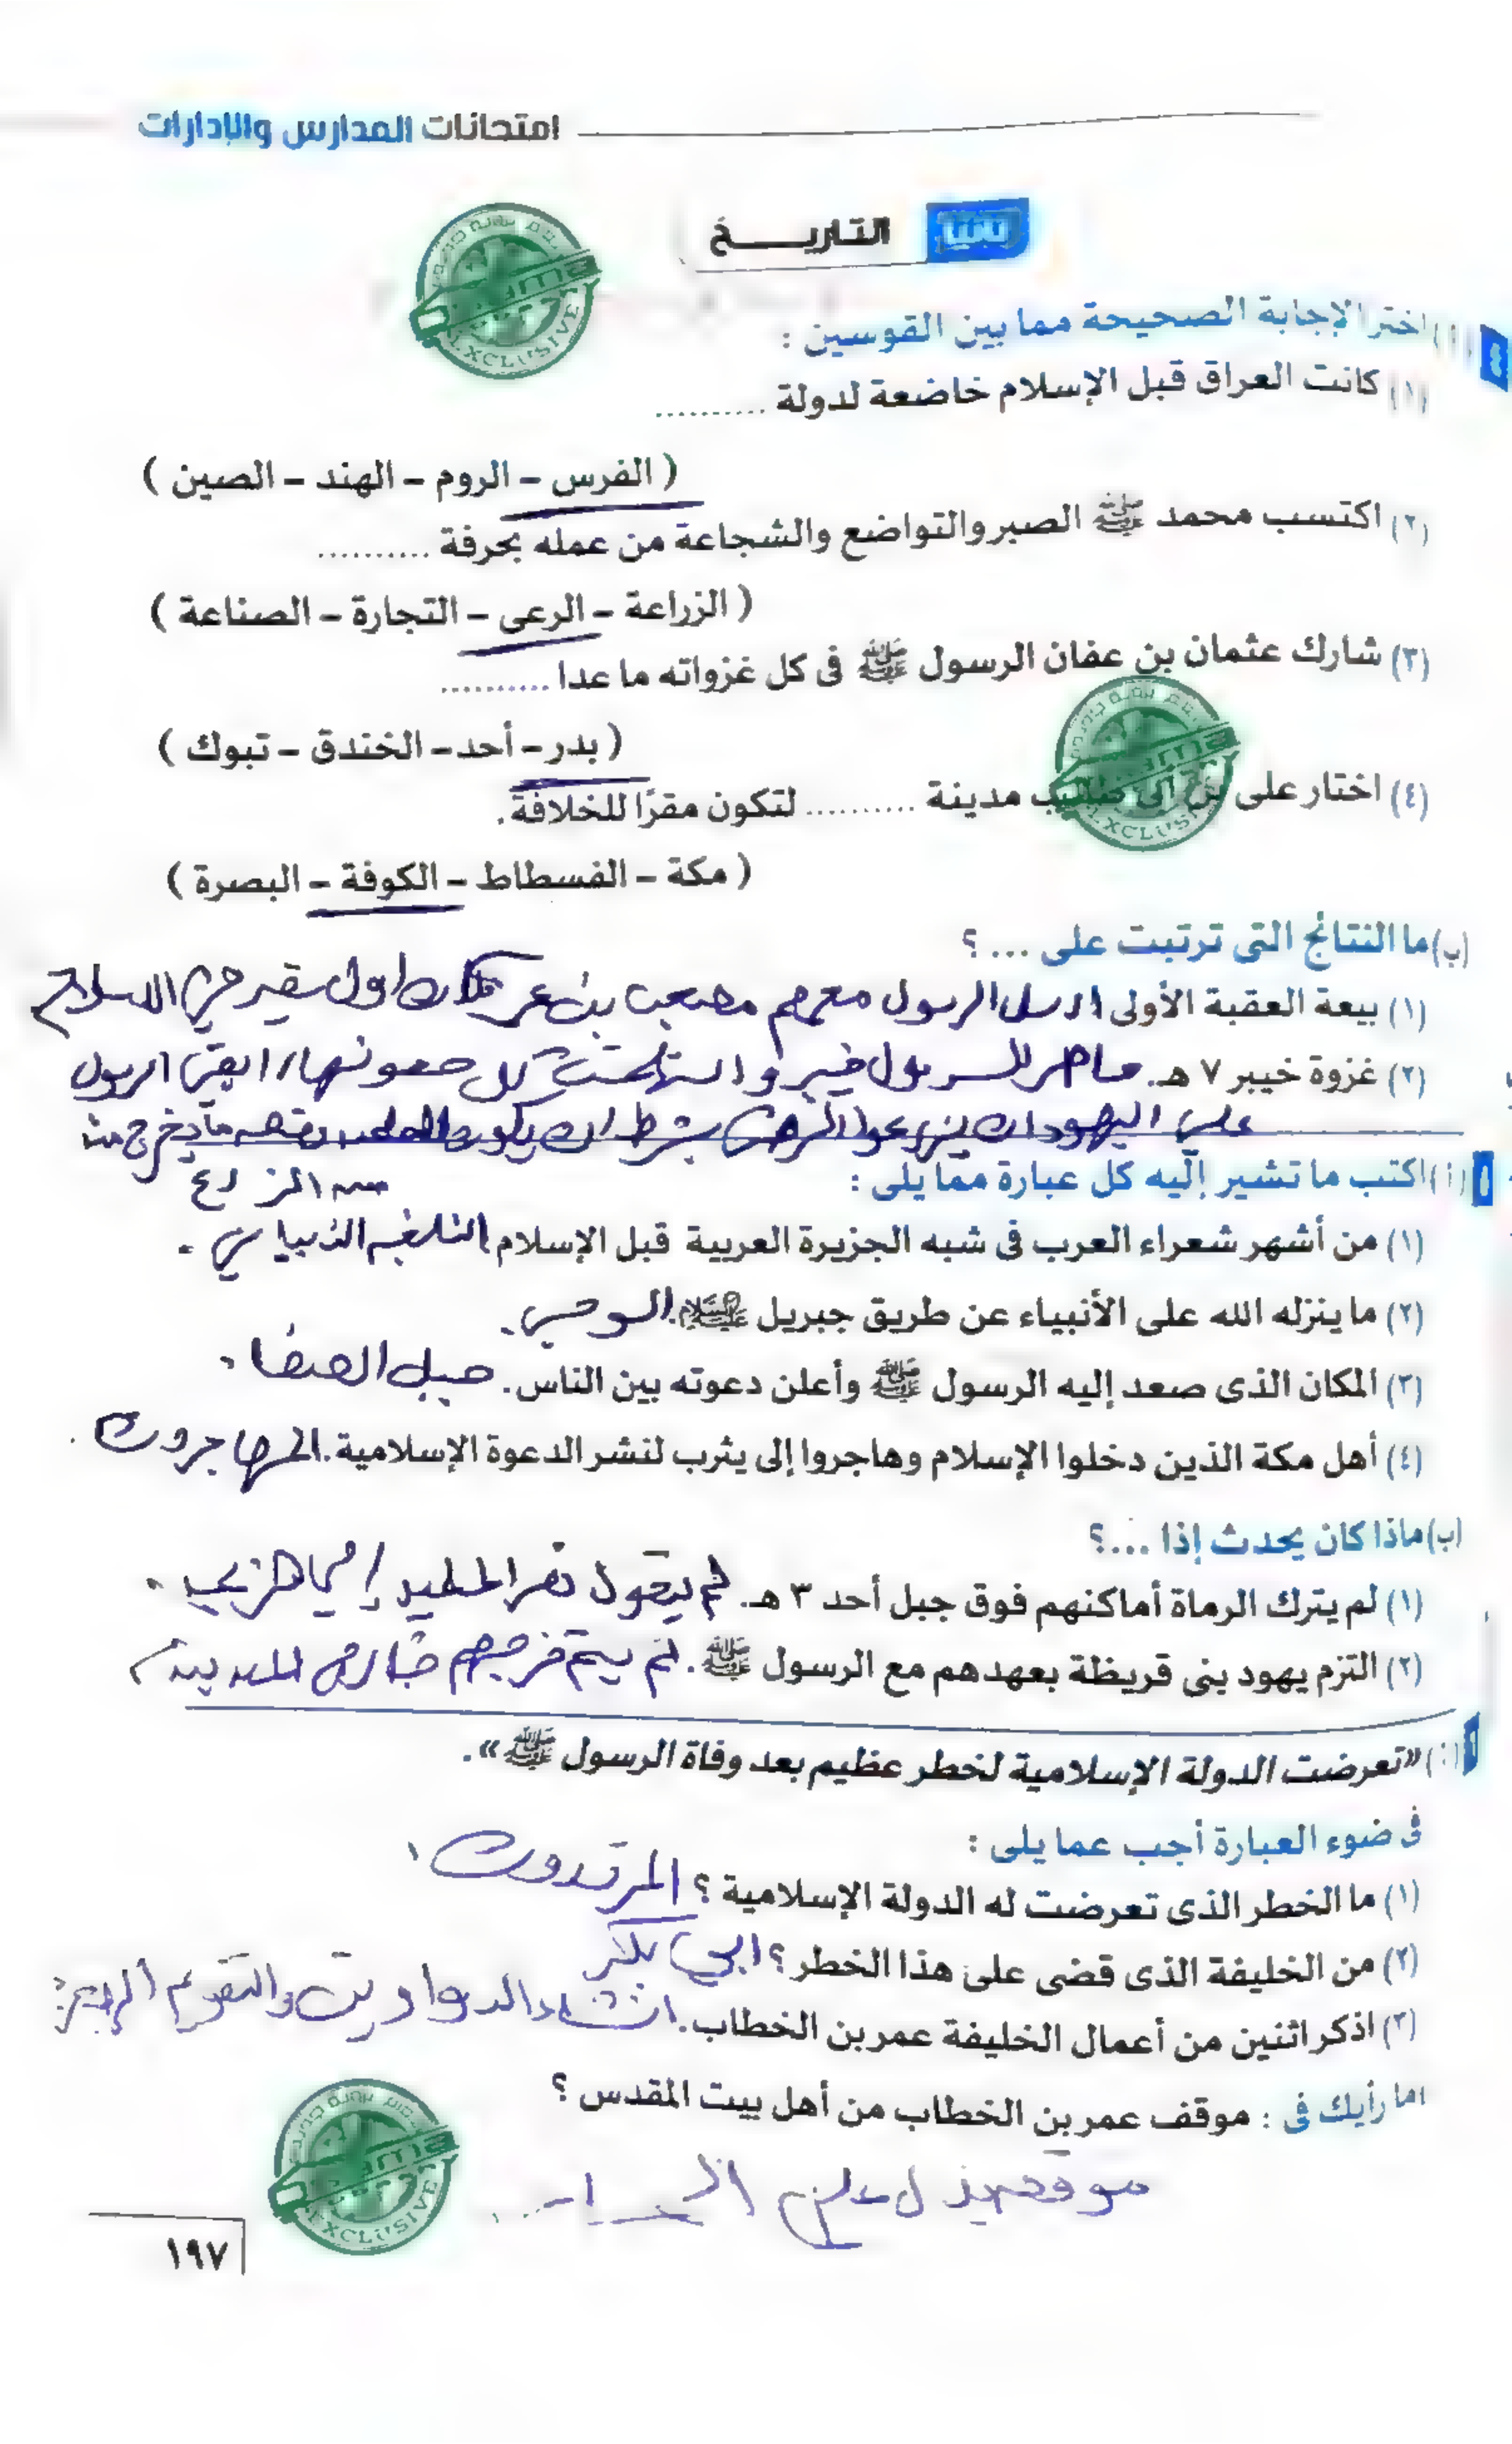 امتحانات المدارس والإدارات
ثانيًا التاريــــخ
(أ) اختر الإجابة الصحيحة مما بين القوسين :
(١) كانت العراق قبل الإسلام خاضعة لدولة ..........
( الفرس - الروم - الهند - الصين )
(٢) اكتسب محمد ﷺ الصبر والتواضع والشجاعة من عمله بحرفة ..........
( الزراعة - الرعى - التجارة - الصناعة )
(٣) شارك عثمان بن عفان الرسول ﷺ فى كل غزواته ما عدا ..........
( بدر - أحد - الخندق - تبوك )
(٤) اختار على بن أبى طالب مدينة .......... لتكون مقرًا للخلافة.
( مكة - الفسطاط - الكوفة - البصرة )
(ب) ما النتائج التى ترتبت على ... ؟
(١) بيعة العقبة الأولى ارسل الرسول معهم مصعب بن اول سفير في الاسلام
(٢) غزوة خيبر ٧ هـ. حاصر الرسول خيبر و كل حصونها، ابقى الرسول
على اليهود ان يزرعوا الارض بشرط ان يكون ما يخرج من
الزرع
٥ (أ) اكتب ما تشير إليه كل عبارة مما يلى :
(١) من أشهر شعراء العرب فى شبه الجزيرة العربية قبل الإسلام النابغه الذبياني.
(٢) ما ينزله الله على الأنبياء عن طريق جبريل عليه السلام. الوحي.
(٣) المكان الذى صعد إليه الرسول ﷺ وأعلن دعوته بين الناس. جبل الصفا.
(٤) أهل مكة الذين دخلوا الإسلام وهاجروا إلى يثرب لنشر الدعوة الإسلامية. المهاجرون.
(ب) ماذا كان يحدث إذا ...؟
(١) لم يترك الرماة أماكنهم فوق جبل أحد ٣ هـ. لم يتحول نصر المسلمين إلى هزيمه.
(٢) التزم يهود بنى قريظة بعهدهم مع الرسول ﷺ. لم يتم خروجهم خارج المدينة
(أ) «تعرضت الدولة الإسلامية لخطر عظيم بعد وفاة الرسول ﷺ».
فى ضوء العبارة أجب عما يلى :
(١) ما الخطر الذى تعرضت له الدولة الإسلامية ؟ المرتدون
(٢) من الخليفة الذى قضى على هذا الخطر ؟ ابي بكر
(٣) اذكر اثنين من أعمال الخليفة عمر بن الخطاب. انشاء الدواوين والتقويم الهجري
ما رأيك فى : موقف عمر بن الخطاب من أهل بيت المقدس ؟
موقف يدل على
١٩٧